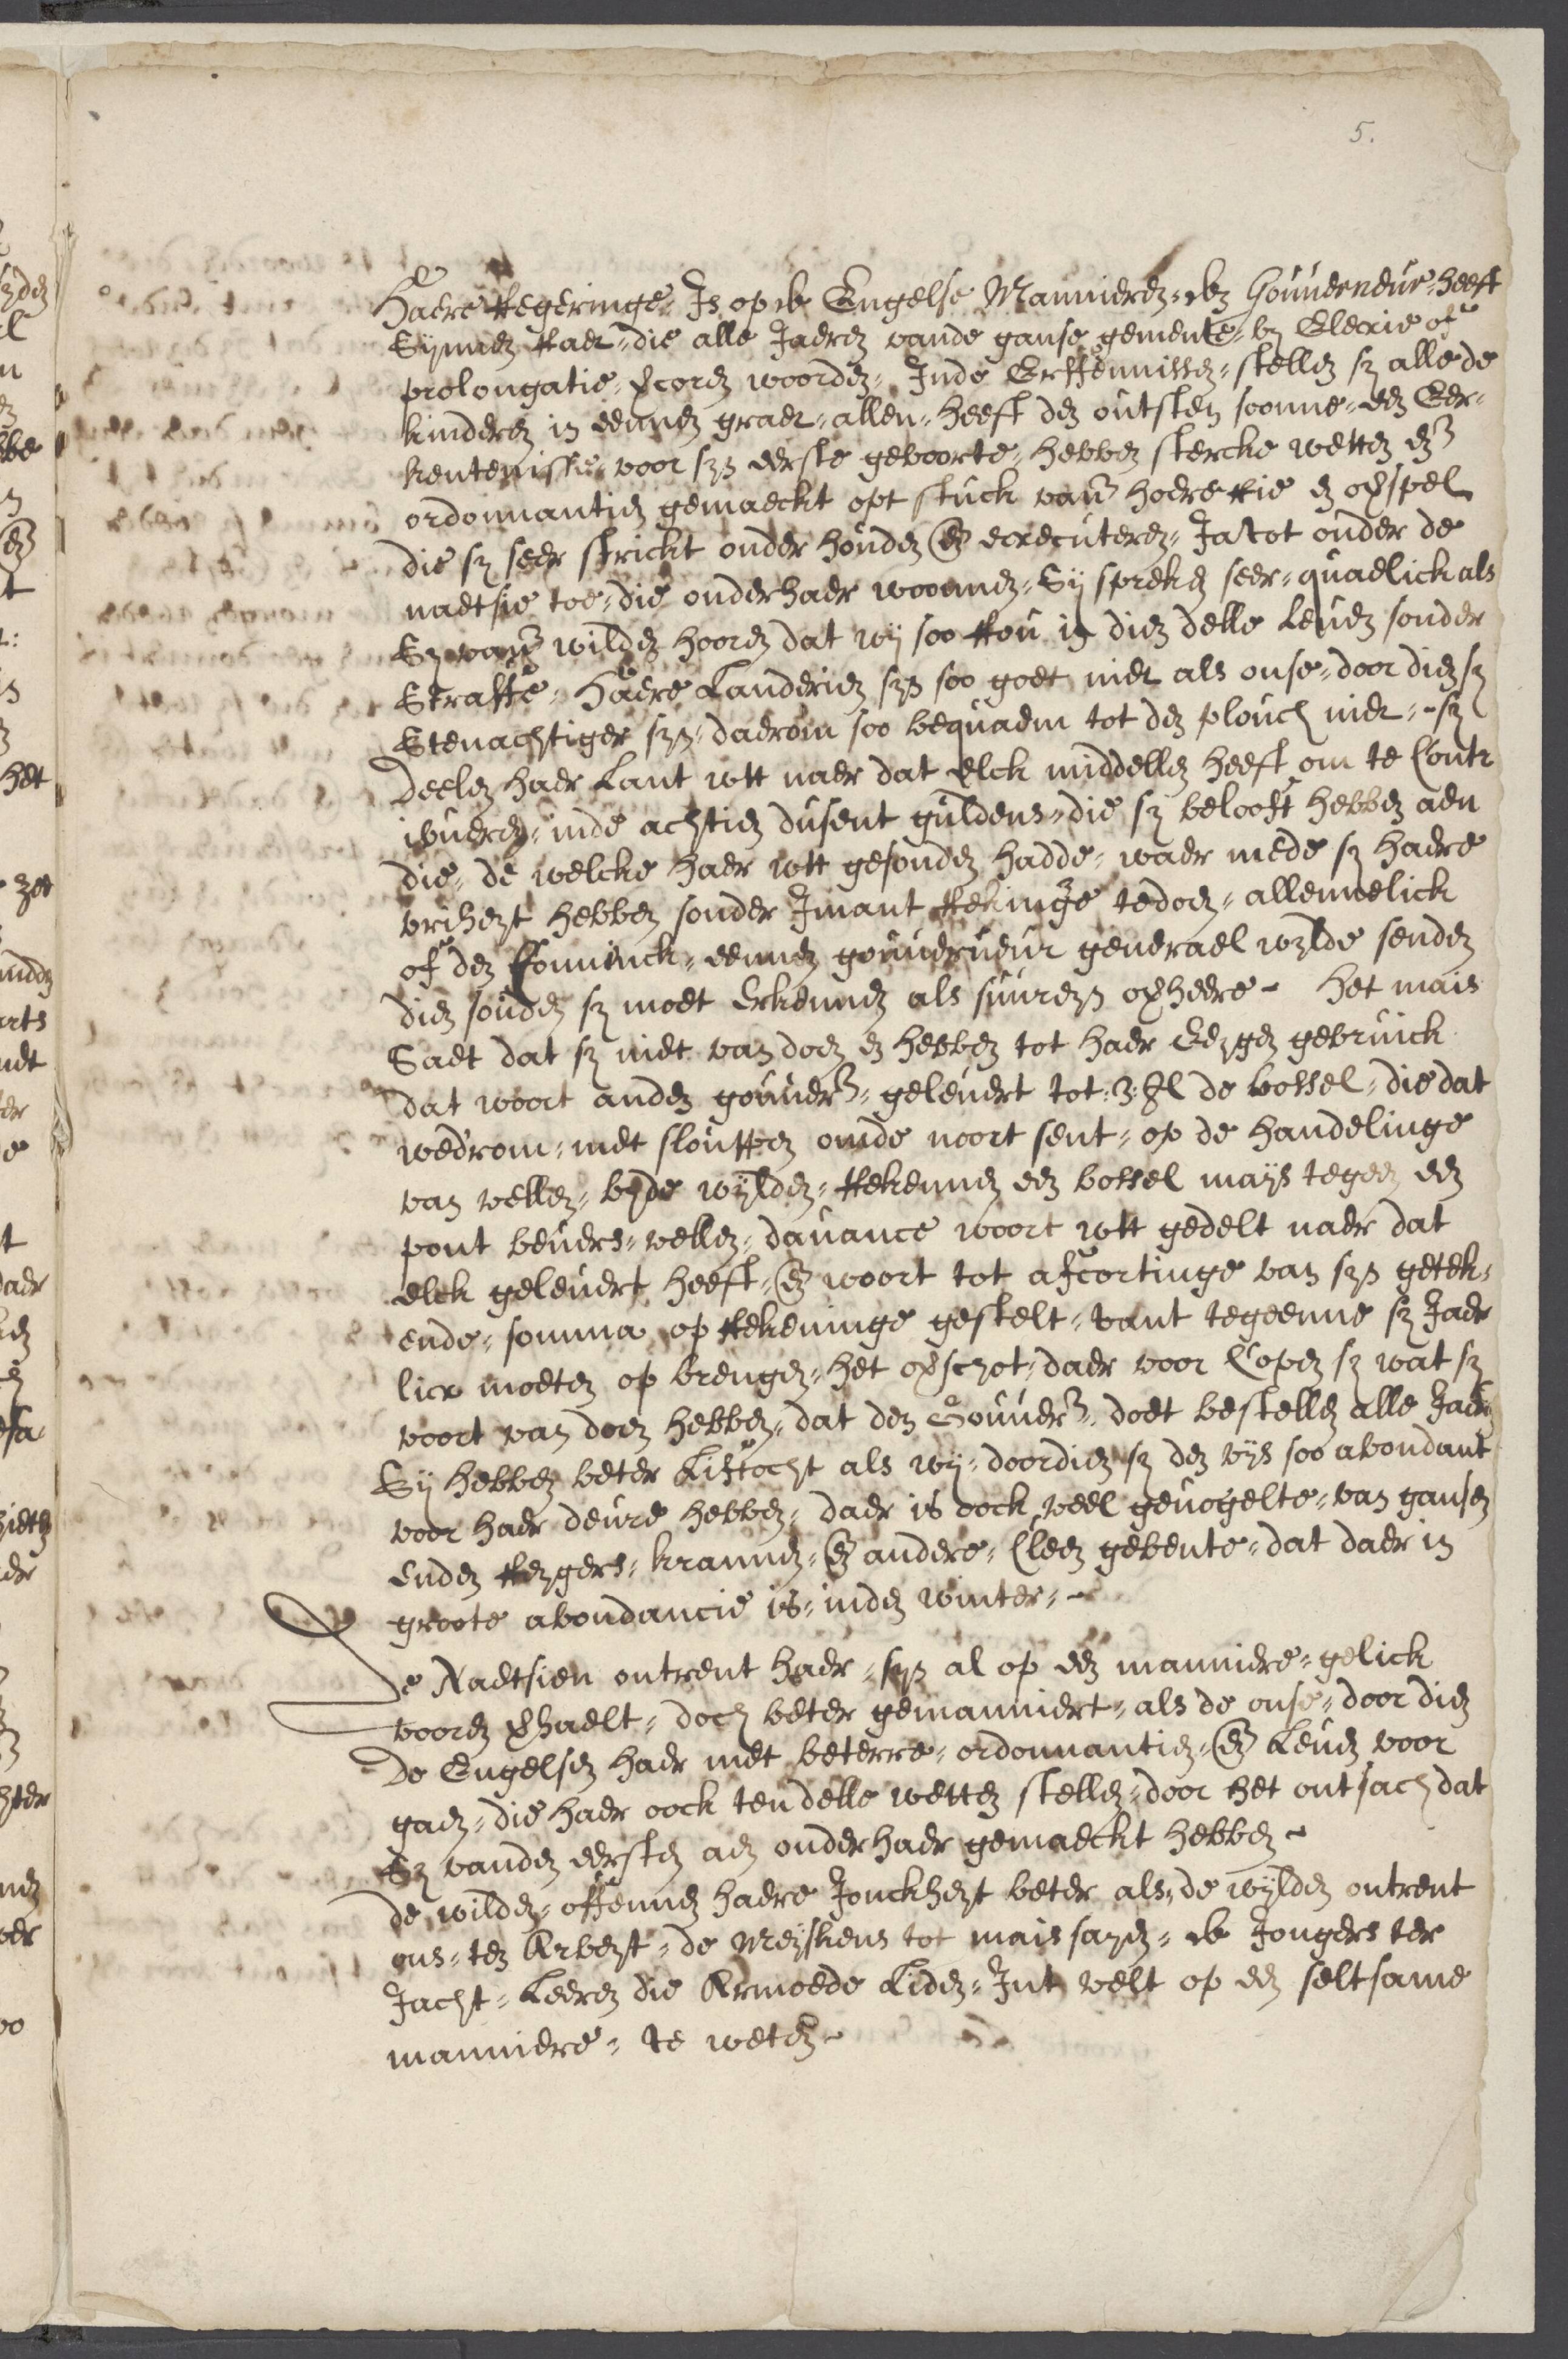 5.
Haere Regeringe, Is op de Engelse Mannieren, den Gouverneur heeft
Synnen Raet, die alle Jaeren vande ganse gemente, by Elexie of
prolongatie, vercoren woorden, Inde Erffennissen, stellen sy alle de
kinderen in eennen graet, allen, heeft den outsten soonne, een Eer-
kentenisse, voor syn eerste geboorte, hebben stercke wetten en
ordonnantien gemaeckt opt stuck van hoererie en overspel
die sy seer strickt onder houden en executeren, Ja tot onder de
naetsie toe, die onder haer woonnen, Sy spreken seer, quaelick als
Sy van wilden hooren dat wy soo rou in dien delle leven sonder
Straffe, Haere Landerien syn soo goet niet als onse, door dien sy
Stenachtiger syn, daerom soo bequaem tot den plouch niet, - sy
deelen haer Lant wtt naer dat elck middellen heeft om te Contr
ibueren, inde achtien dusent guldens, die sy belooft hebben aen
die, de welcke haer wtt gesonden hadde, waer mede sy haere
vriheyt hebben sonder Imant Rekinge te doen, allennelick
of den Conninck, eennen gouverneur generael wylde senden
dien souden sy moet Erkennen als suureyn overheere - Het mais
Saet dat sy niet van doen en hebben tot haer Eeygen gebruick
dat woort anden gouver, gelevert tot : 3: gl de bossel, die dat
wedrom, met slouppen omde noort sent, op de handelinge
van vellen, byde wylden, Rekennen een bossel mays tegen een
pont bevers, vellen, davance woort wtt gedelt naer dat
elck gelevert heeft, en woort tot afcortinge van syn getek-
ende, somma op Rekeninge gestelt, vant tegeenne sy Jaer
licx moeten op brengen, het overschot, daer voor Copen sy wat sy
voort van doen hebben, dat den Gouver, doet bestellen alle Jaer,
Sy hebben beter Liftocht als wy, doordien sy den vys soo abondant
voor haer deure hebben, daer is oock veel gevogelte, van gansen
Enden Reygers, krannen, en andere, Cleen gebente, dat daer in
groote abondancie is, inden winter, -
De Naetsien ontrent haer, syn al op een manniere, gelick
vooren verhaelt, doch beter gemanniert, als de onse, door dien
de Engelsen haer met beterre, ordonnantien, en Leven voor
gaen, die haer oock ten delle wetten stellen, door het ontsach dat
Sy vanden eersten aen onder haer gemaeckt hebben -
de wilden, offennen haere Jonckheyt beter als, de wylden ontrent
ons, ten Arbeyt, de Meyskens tot mais sayen, de Jongers ter
Jacht, Leeren die Armoede Liden, Int velt op een seltsame
manniere, te weten -